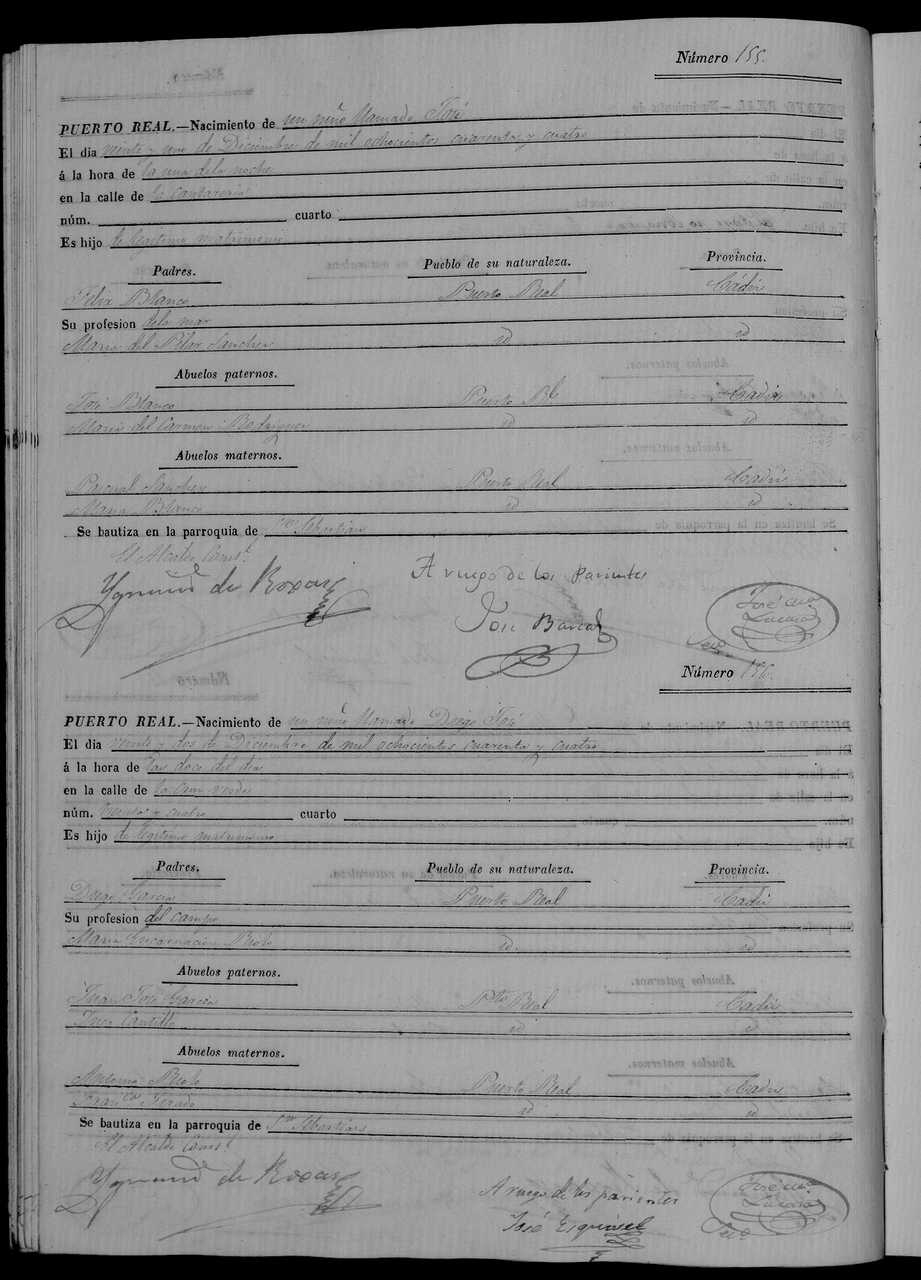 Número 155.
PUERTO REAL.—Nacimiento de un niño llamado José
El dia veinte y uno de Diciembre de mil ochocientos cuarenta y cuatro
á la hora de la una dela noche
en la calle de
núm. cuarto
Es hijo de legitimo matrimonio
Padres. Pueblo de su naturaleza. Provincia.
Felix Blanco Puerto Real Cádiz
Su profesion dela mar
Maria del Pilar Sanchez id id
Abuelos paternos.
José Blanco Puerto Rl Cadiz
Maria del Carmen Rodriguez id id
Abuelos maternos.
Pascual Sanchez Puerto Real Cadiz
Maria Blanco id id
Se bautiza en la parroquia de Sn Sebastian
El Alcalde Const.l
de Roxas
A ruego de los Parientes
José
José
Número 156.
PUERTO REAL.—Nacimiento de un niño llamado Diego José
El dia veinte y dos de Diciembre de mil ochocientos cuarenta y cuatro
á la hora de las doce del dia
en la calle de
núm. y cuatro cuarto
Es hijo de legitimo matrimonio
Padres. Pueblo de su naturaleza. Provincia.
Diego Garcia Puerto Real Cadiz
Su profesion del campo
Maria Encarnacion id. id
Abuelos paternos.
Juan José Garcia Pto Real Cadiz
id id
Abuelos maternos.
Antonio Puerto Real Cadiz
id id
Se bautiza en la parroquia de Sn Sebastian
El Alcalde Const.l
de Roxas
A ruego de los parientes
José Esquivel
José